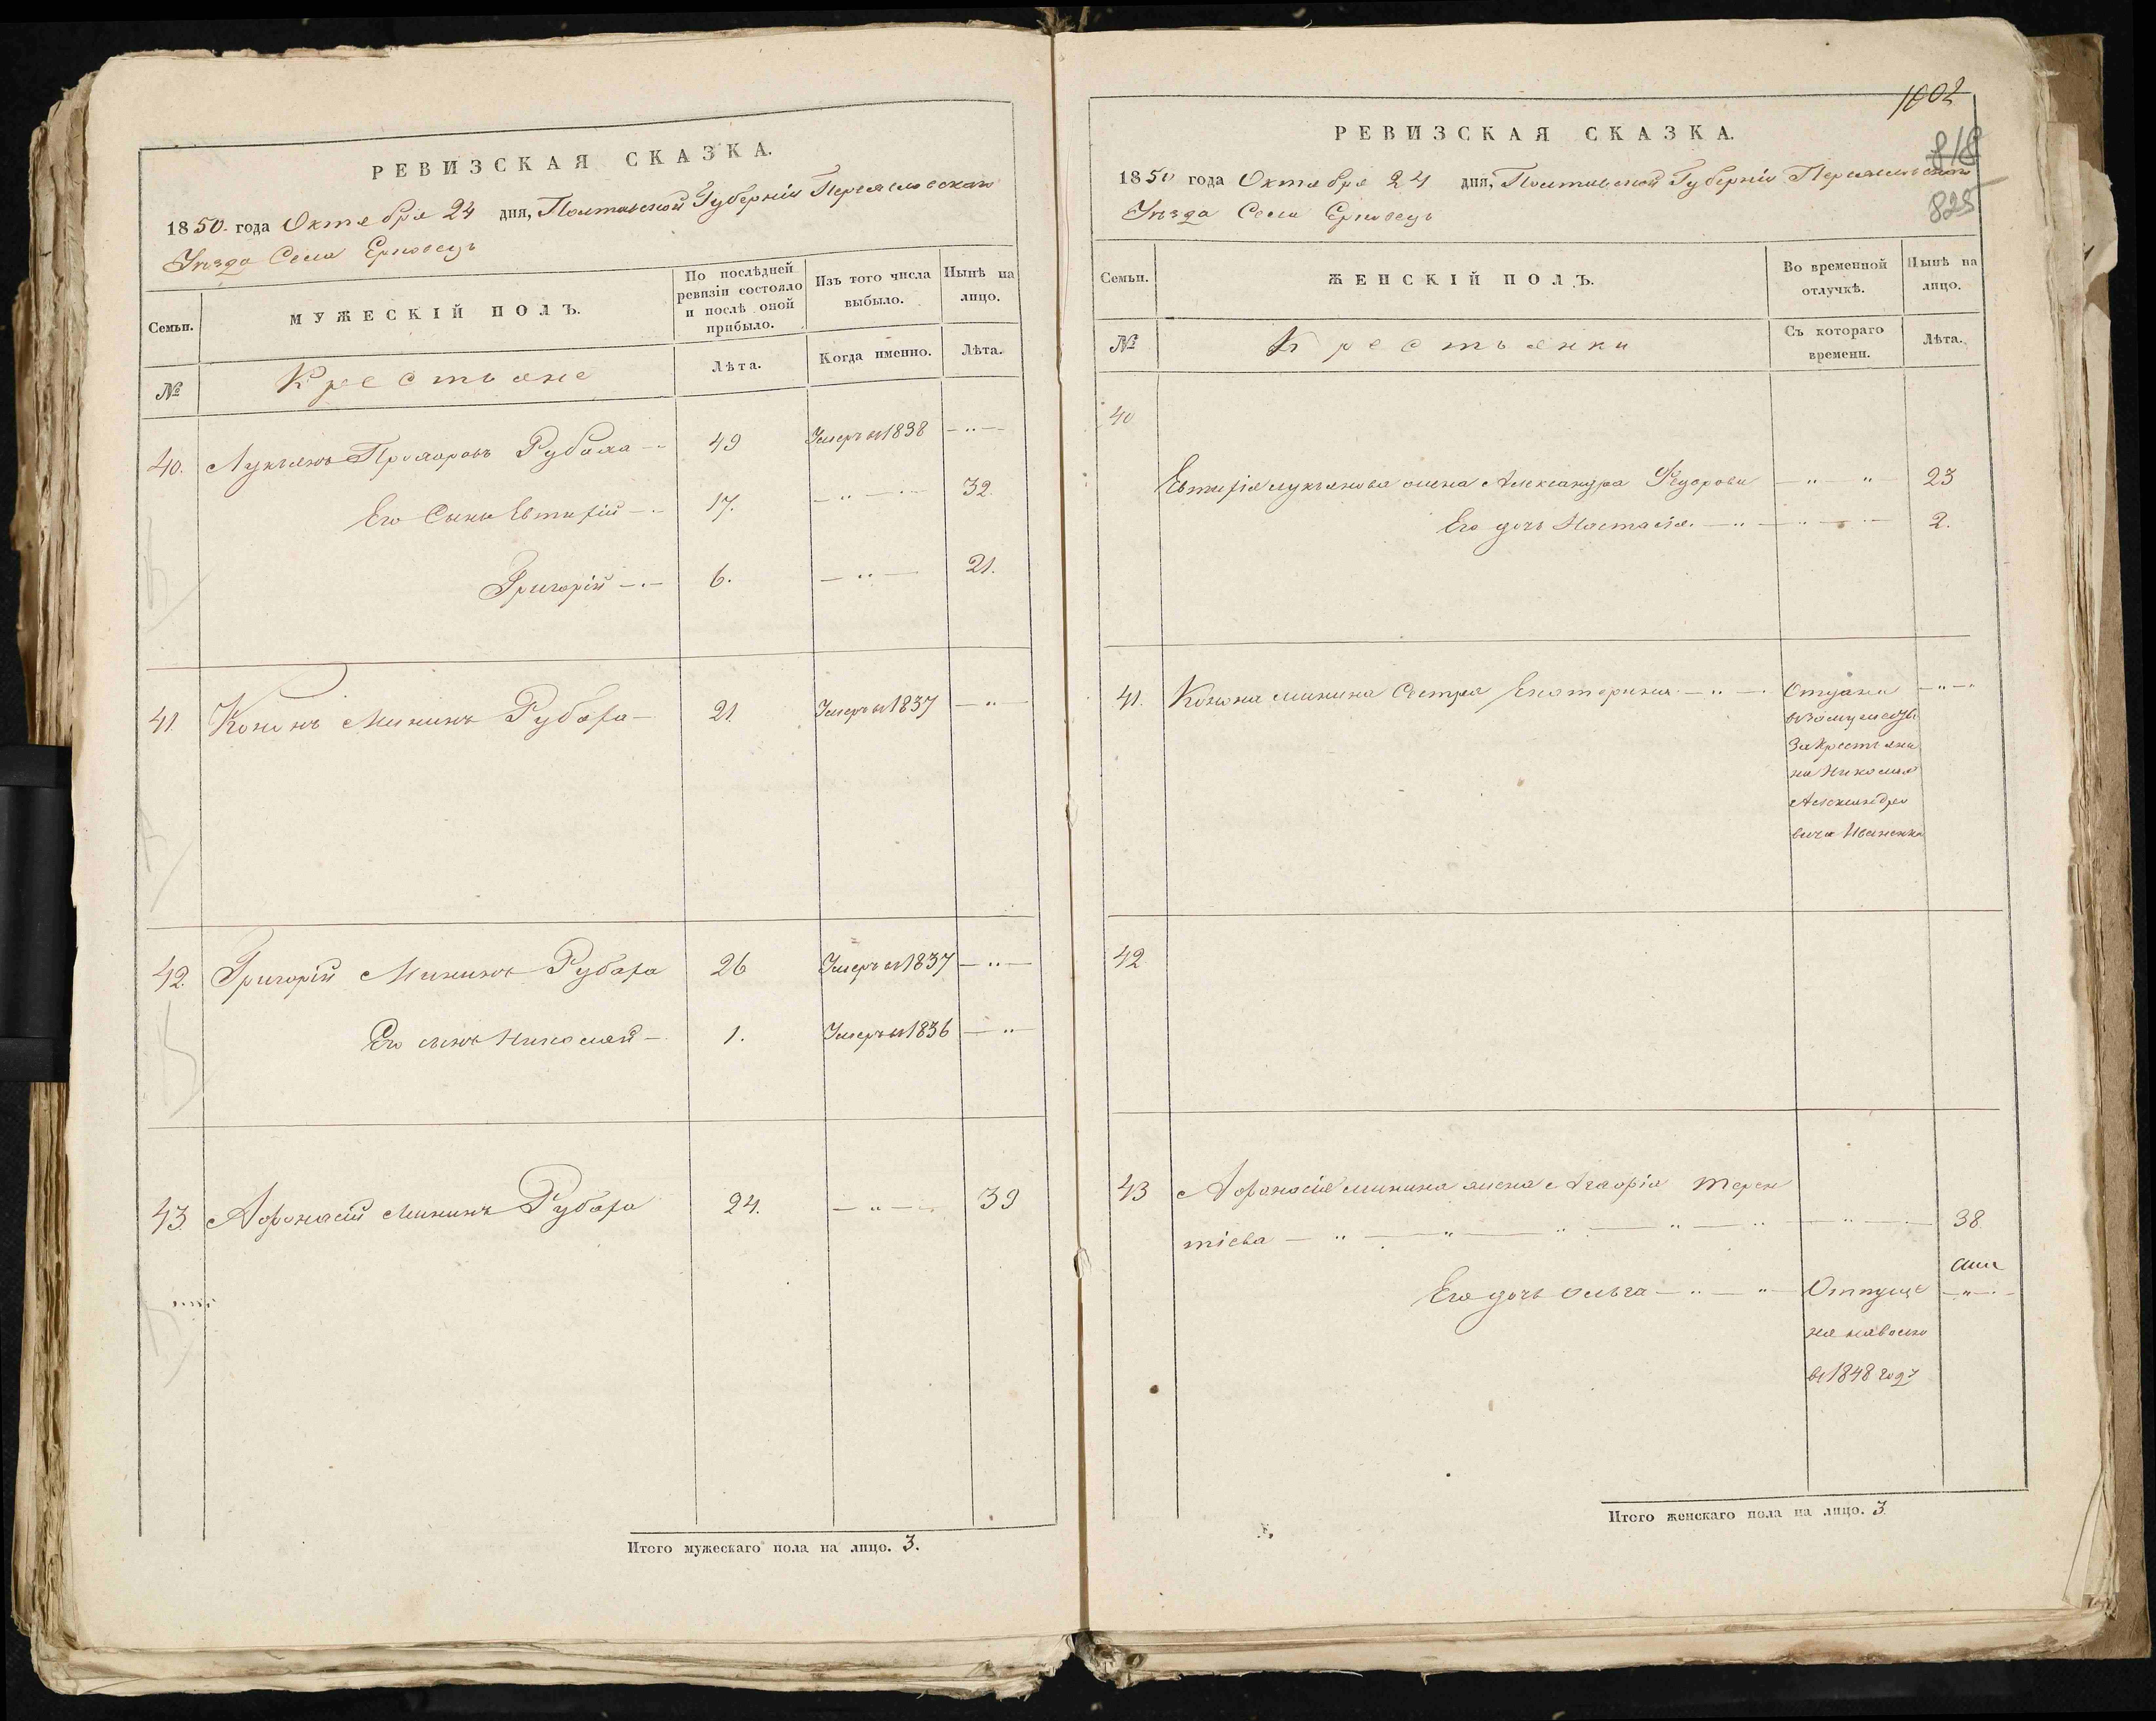 РЕВИЗСКАЯ СКАЗКА.
1850. года Октября 24 дня, Полтавской Губерніи Переяславскаго
Уѣзда Села Ерковецъ
Семьи.
МУЖЕСКІЙ ПОЛЪ.
По послѣдней
ревизіи состояло
и послѣ оной
прибыло.
Изъ того числа
выбыло.
Нынѣ на
лицо.
№
Крестьяне
Лѣта.
Когда именно.
Лѣта.
40. Лукьянъ Рубаха 49 Умеръ въ 1838
Его Сынъ Евтифій 17. 32.
Григорій 6. 21.
41 Кононъ Мининъ Рубаха 21. Умеръ въ 1837
42. Григорій Мининъ Рубаха 26 Умеръ въ 1837
Его сынъ Николай 1. Умеръ въ 1836
43 Афонасій Мининъ Рубаха 24. 39
Итого мужескаго пола на лицо. 3.
1002
818
825
РЕВИЗСКАЯ СКАЗКА.
1850 года Октября 24 дня, Полтавской Губерніи Переяславскаго
Уѣзда Села Ерковецъ
Семьи.
ЖЕНСКІЙ ПОЛЪ.
Во временной
отлучкѣ.
Нынѣ на
лицо.
№
Крестьянки
Съ котораго
времени.
Лѣта.
40
Евтифія Лукьянова жена Александра Федорова 23
Его дочь Настасія. 2.
41. Конона Минина Сестра Екатерина Отдана
въ замужество
за Крестьяни
на Николая
Александро
вича Иваненка
42
43 Афонасія Минина жена Терен
тіева 38
Его дочь Ольга Отпуще
на на волю
въ 1848 году
Итого женскаго пола на лицо. 3